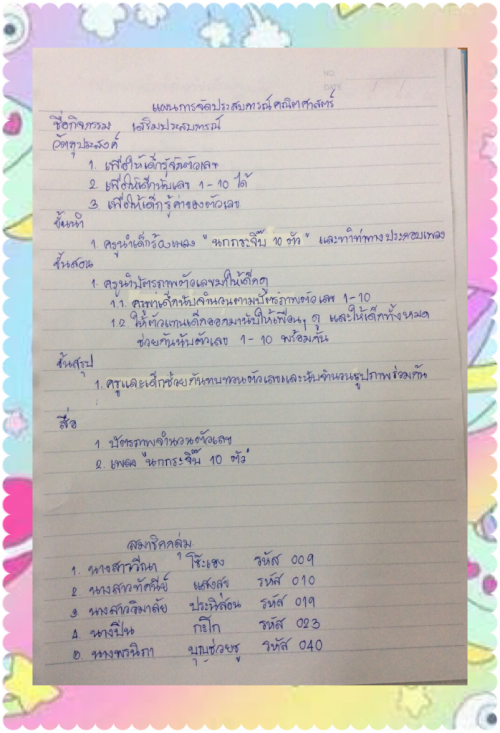 แผนการจัดประสบการณ์คณิตศาสตร์
ชื่อกิจกรรม เสริมประสบการณ์
วัตถุประสงค์
1. เพื่อให้เด็กรู้จักตัวเลข
2. เพื่อให้เด็กนับเลข 1-10 ได้
3. เพื่อให้เด็กรู้ค่าของตัวเลข
ขั้นนำ
1. ครูนำเด็กร้องเพลง "นกกระจิ๊บ 10 ตัว" และทำท่าทางประกอบเพลง
ขั้นสอน
1. ครูนำบัตรภาพตัวเลขมาให้เด็กดู
1.1. ครูพาเด็กนับจำนวนตามบัตรภาพตัวเลข 1-10
1.2. ให้ตัวแทนเด็กออกมานับให้เพื่อนๆ ดู และให้เด็กทั้งหมด
ช่วยกันนับตัวเลข 1-10 พร้อมกัน
ขั้นสรุป
1. ครูและเด็กช่วยกันทบทวนตัวเลขและนับจำนวนรูปภาพร่วมกัน
สื่อ
1. บัตรภาพจำนวนตัวเลข
2. เพลง "นกกระจิ๊บ 10 ตัว"
สมาชิกกลุ่ม
1. นางสาววีณา รหัส 009
2 นางสาวทัศนีย์ แสงสุข รหัส 010
3 นางสาววิมาลัย ประนิสอน รหัส 019
4 นางปิ่น กปึก รหัส 023
5. นางพรนิภา บุญช่วยชู รหัส 040